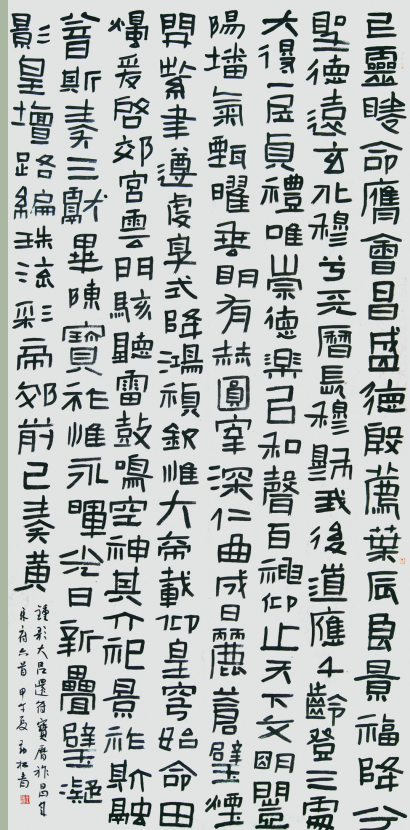 巳靈睠命膺會昌盛德殷薦葉辰良景福降兮
聖德遠玄化穆兮天曆長穆我後道應千齡登三處
大得一居貞禮唯崇德樂以和聲百神仰止天下文明闓
陽播氣甄曜垂明有赫圓宰深仁曲成日麗蒼璧煙
開紫聿遵虔享式降鴻禎欽惟大帝載仰皇穹始命田
燭爰啓郊宮雲門駭聽雷鼓鳴空神其介祀景祚斯融
斯奏三獻畢陳寶祚惟永暉光日新疊璧凝
影皇壇路編珠流彩帝郊前已奏黃
鍾歌大呂還符寶曆祚昌年
六首甲午夏書